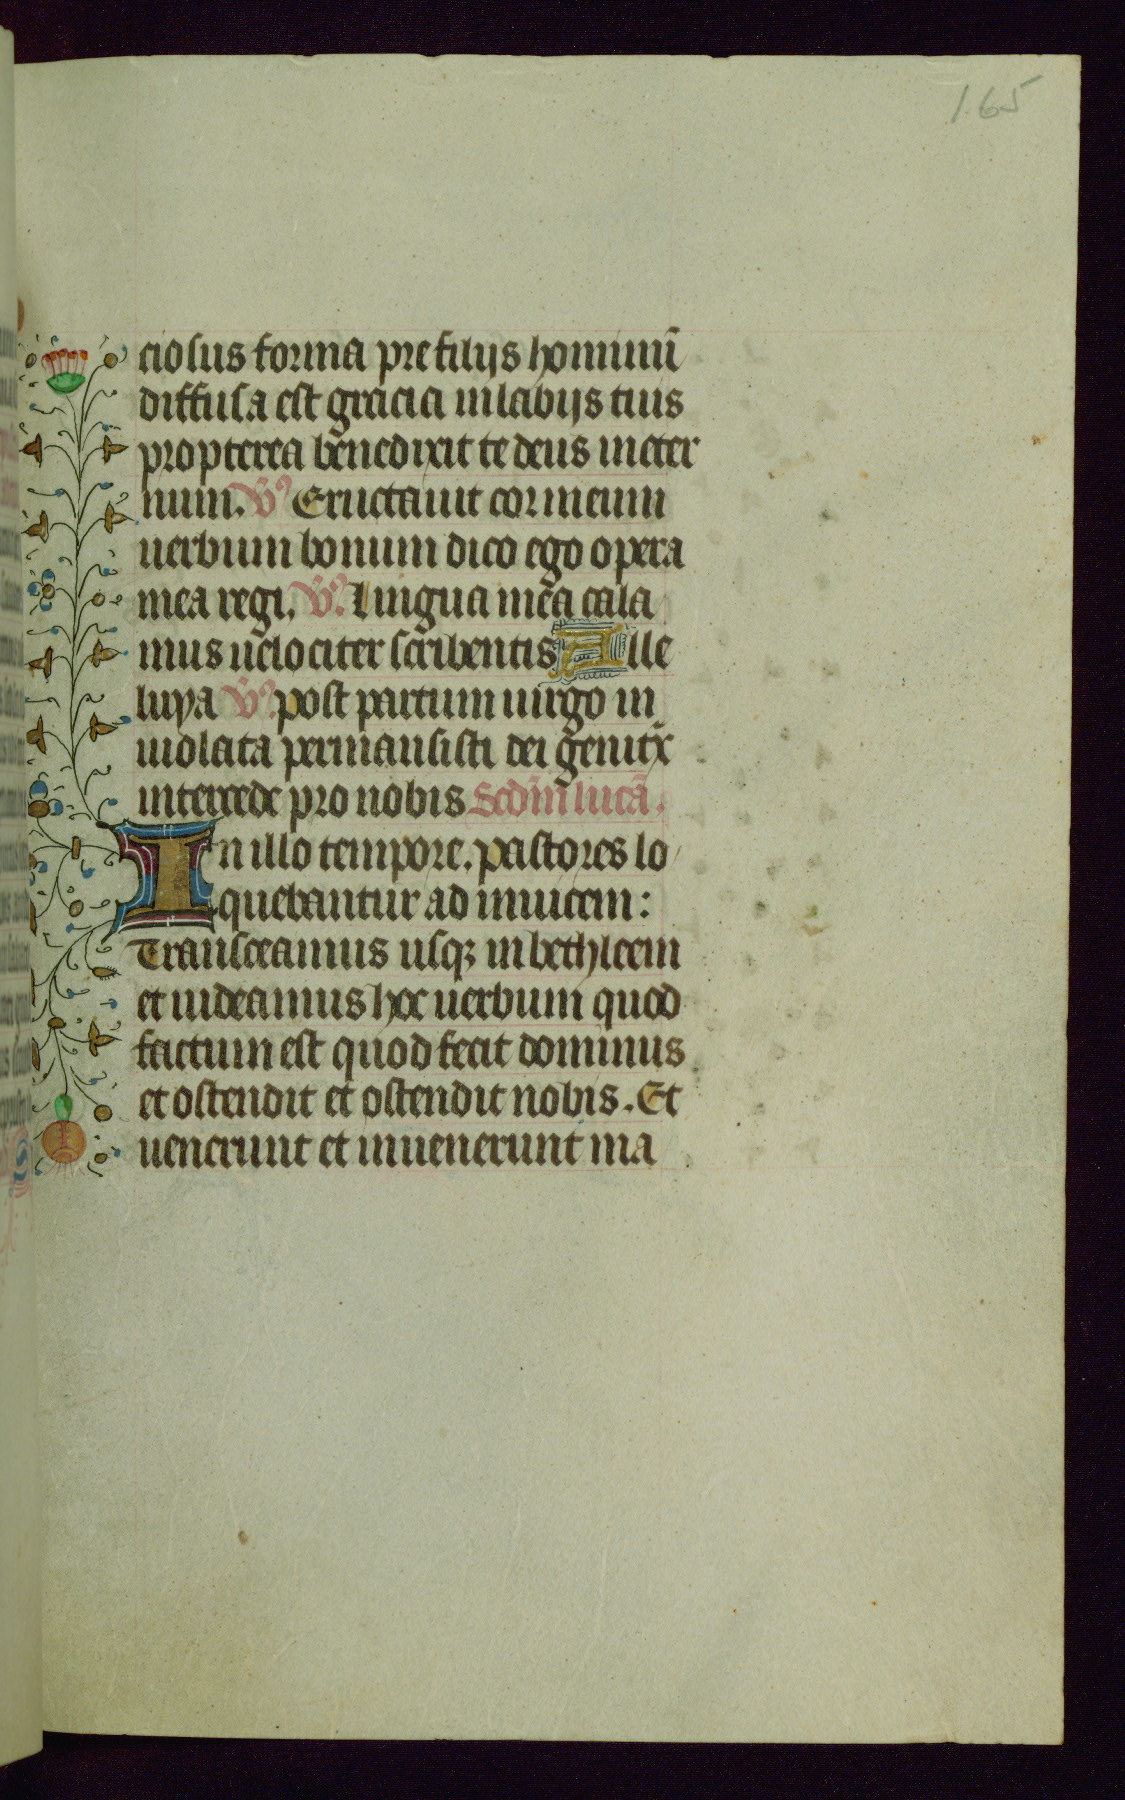 165
ciosus forma pre filijs hominū
diffusa est gracia in labijs tuis
propterea benedixit te deus in eter
num. V᷒ Eructauit cor meum
uerbum bonum dico ego opera
mea regi. V᷒. Lingua mea cala
mus uelociter scribentis Alle
luya V᷒. post partum uirgo in
uiolata permansisti dei genitx̄
intercede pro nobis Scdm̄ lucā.
In illo tempore. pastores lo
quebantur ad inuicem:
Transeamus usqꝫ in bethleem
et uideamus hoc uerbum quod
factum est quod fecit dominus
et ostendit et ostendit nobis. Et
uenerunt et inuenerunt ma